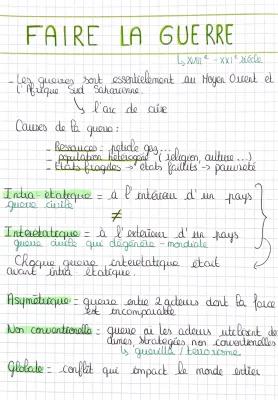 FAIRE LA GUERRE
↳ XVIIIe - XXIe siècle
- Les guerres sont essentiellement au Moyen Orient et
l'Afrique Sud Saharienne.
↳ l'arc de crise
Causes de la guerre :
- Ressources : pétrole gaz...
- population hétérogène (religion, culture...)
- Etats fragiles → états faillits → pauvreté
Intra-étatique = à l'intérieur d'un pays
guerre civile
≠
Interétatique = à l'extérieur d'un pays
guerre civile qui dégénère - mondiale
Chaque guerre interétatique était
avant intra étatique.
Asymétrique = guerre entre 2 acteurs dont la force
est incomparable
Non conventionelle = guerre où les acteurs utilisent des
armes, stratégies non conventionelles
↳ guérilla / terrorisme
Globale = conflit qui impact le monde entier